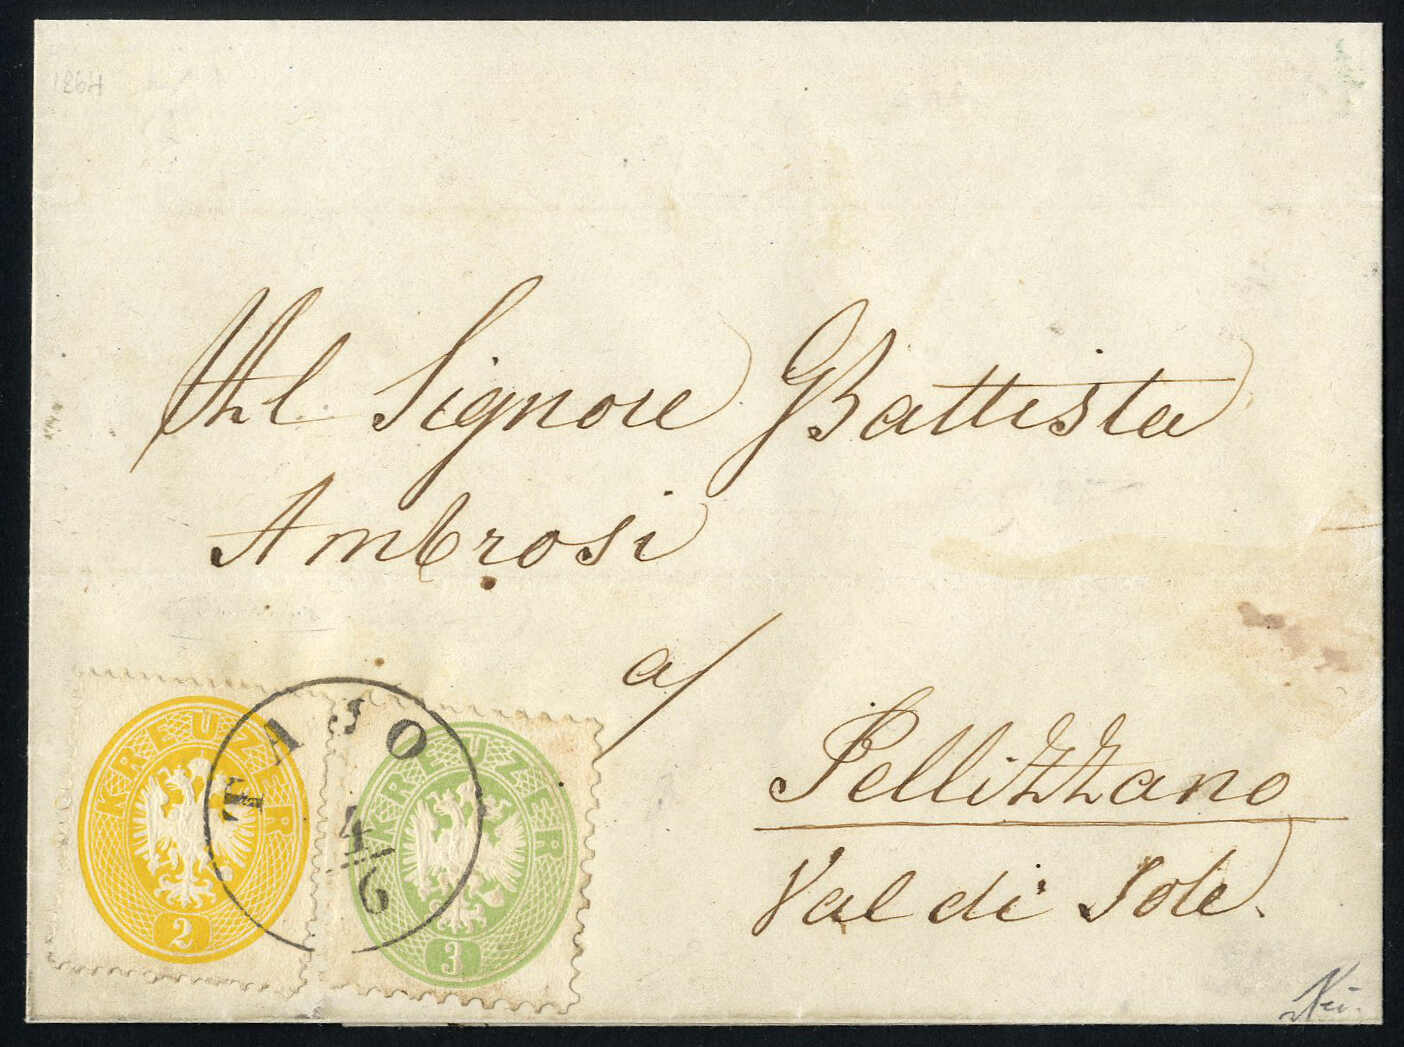 1864
Al Signore GBattista
Ambrosi
a/
Pellizzano
Val di Sole.
KREUZER
2
KREUZER
3
TAJO
4/6